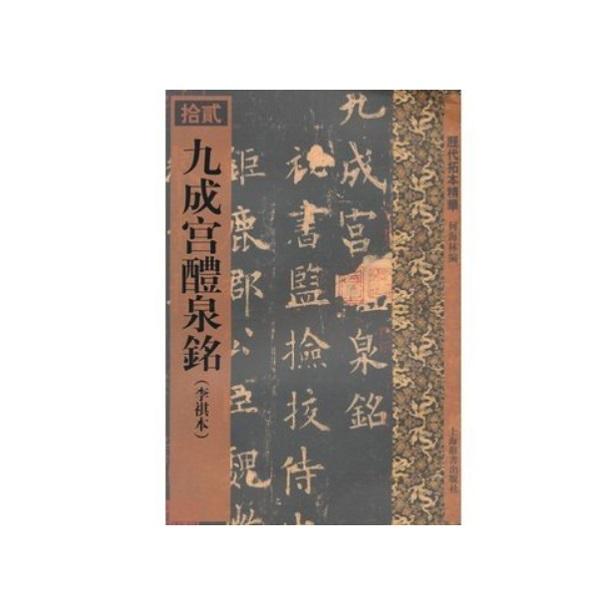 歷代拓本精華
何海林編
上海辭書出版社
九成宮醴泉銘
秘書監撿挍侍
鉅鹿郡公臣魏
拾貳
九成宫醴泉銘
(李祺本)